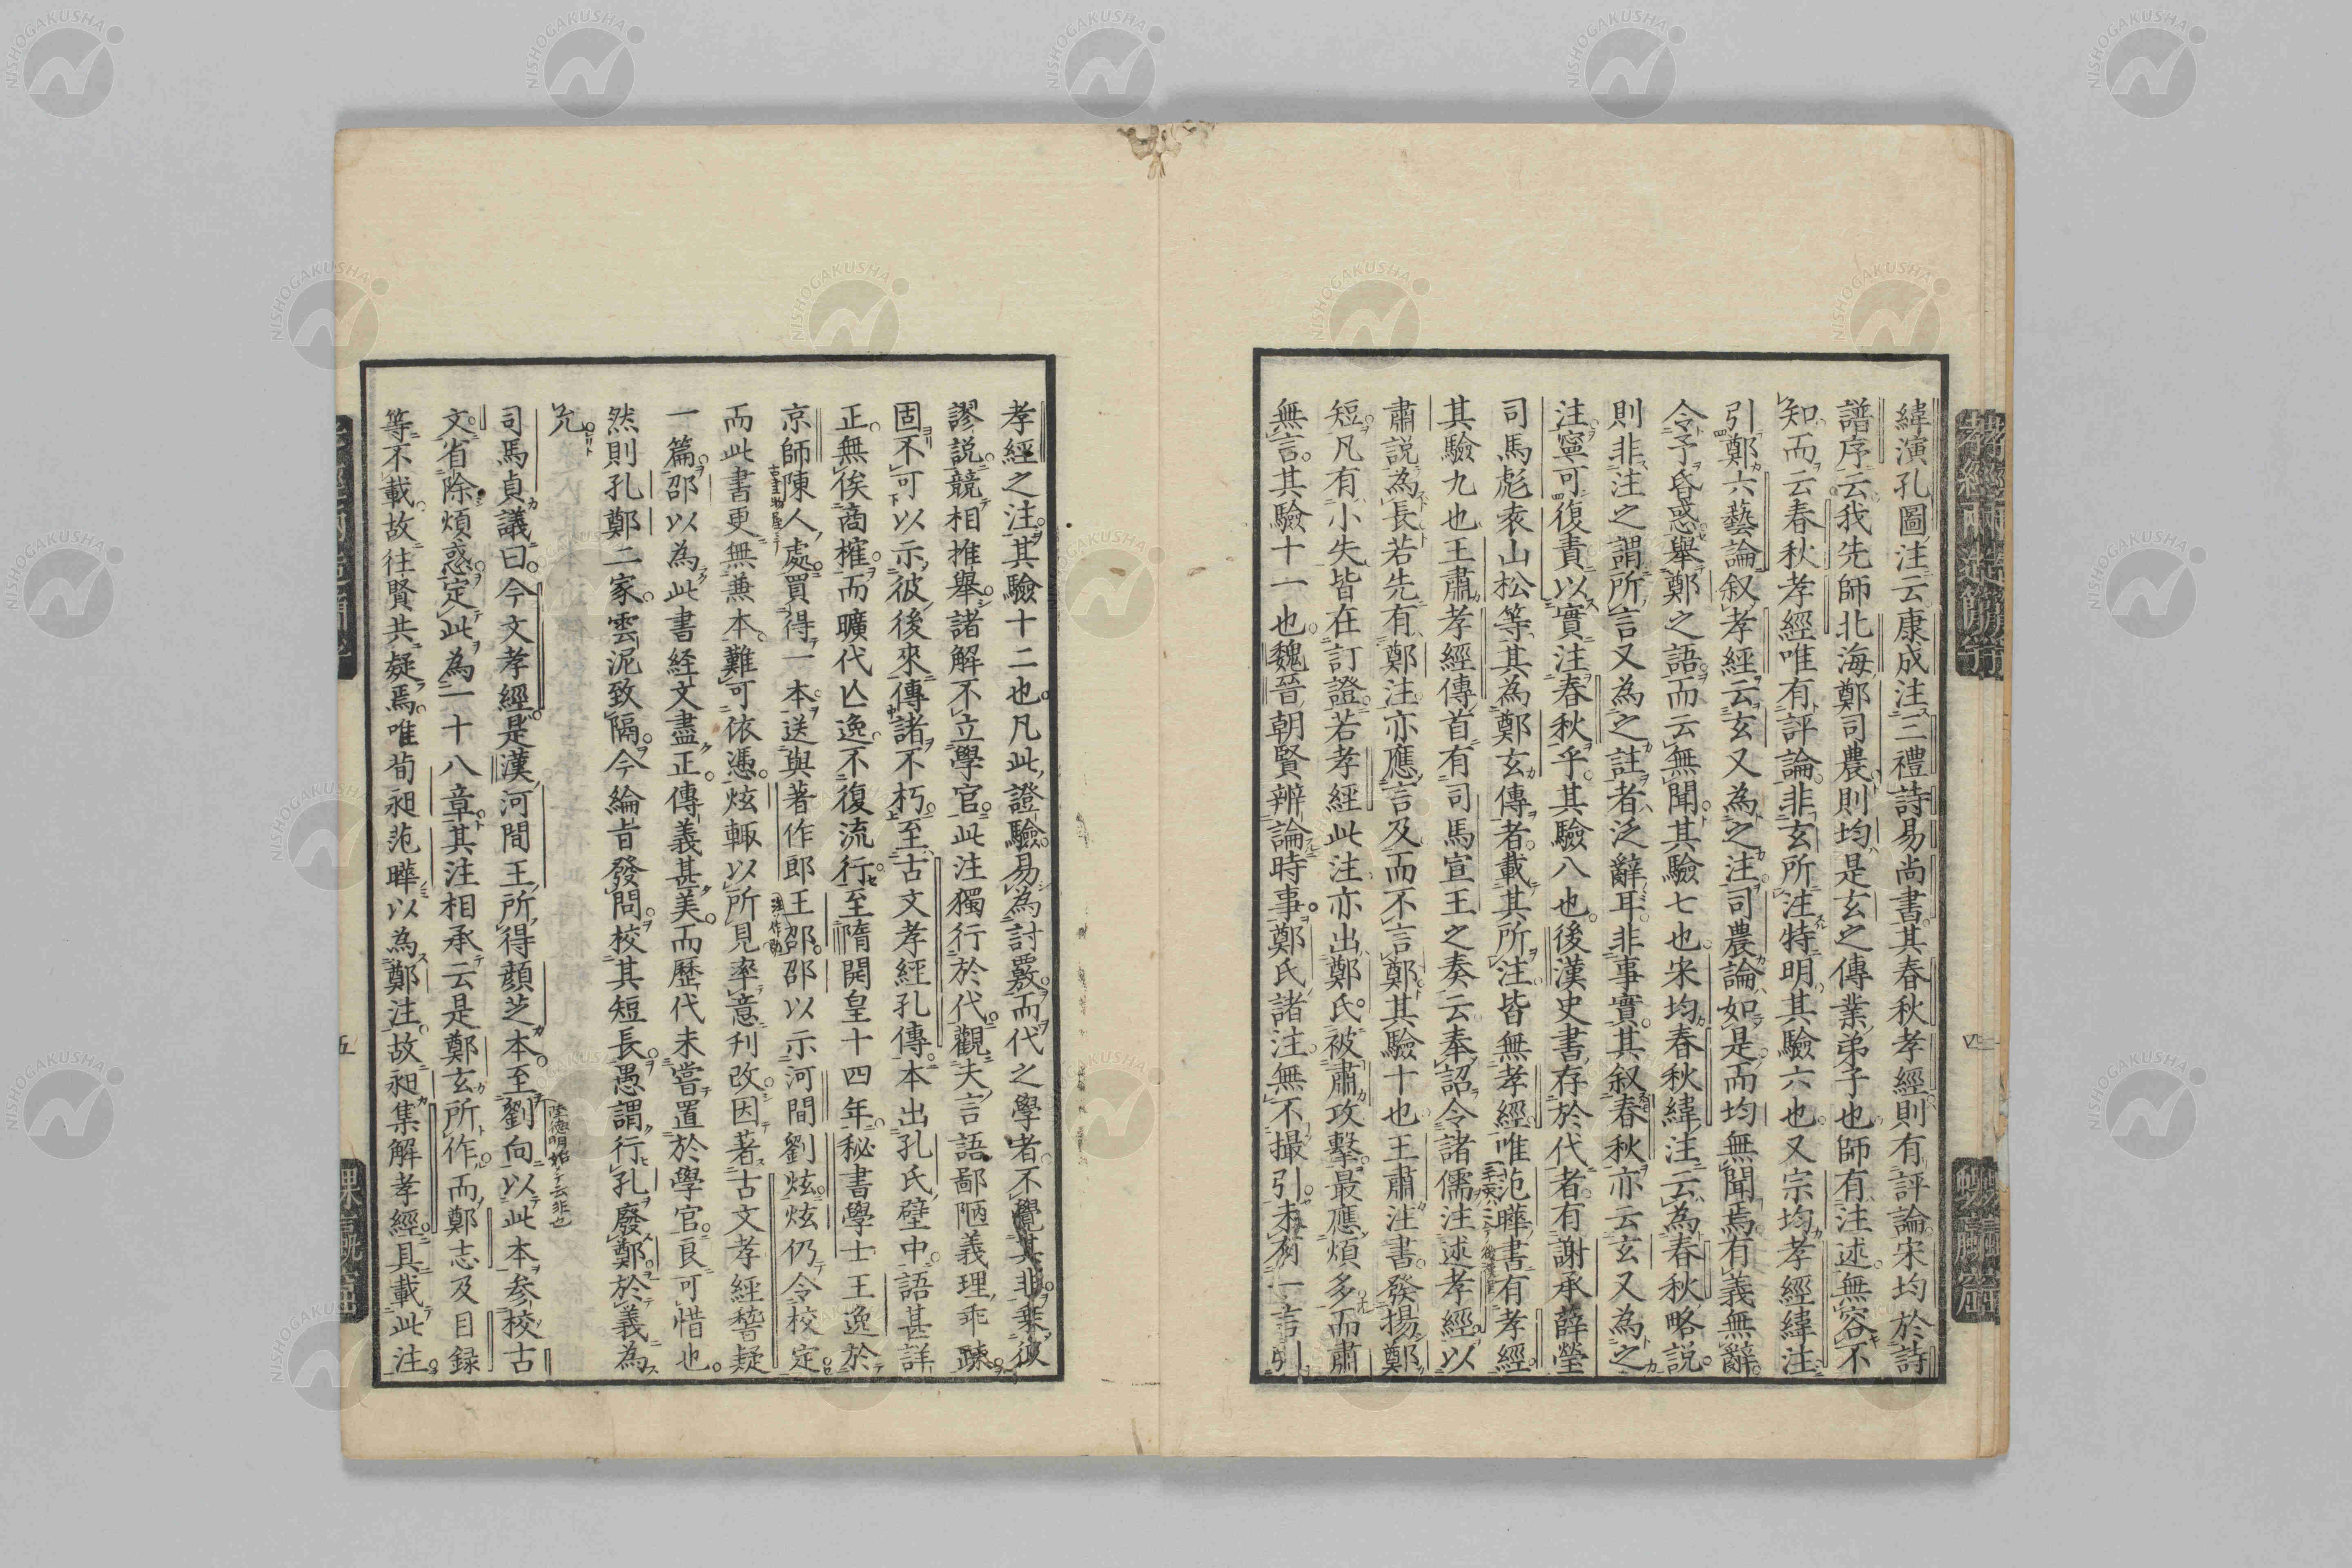 緯演孔圖注云康成注三禮詩易尚書其春秋孝經則有評論宋均於詩
譜序云我先師北海鄭司農則均是玄之傳業弟子也師有注述無容不
知而云春秋孝經唯有評論非玄所注特明其驗六也又宗均孝經緯注
引鄭六藝論叙孝經云玄又為之注司農論如是而均無聞焉有義無辭
令予昏惑舉鄭之語而云無聞其驗七也宋均春秋緯注云為春秋略説
則非注之謂所言又為之註者泛辭耳非事實其叙春秋亦云玄又為之
注寧可復責以實注春秋乎其驗八也後漢史書存於代者有謝承薛瑩
司馬彪袁山松等其為鄭玄傳者載其所注皆無孝經唯范曄書有孝經
其驗九也王肅孝經傳首有司馬宣王之奏云奉詔令諸儒注述孝經以
肅説為長若先有鄭注亦應言及而不言鄭其驗十也王肅注書發揚鄭
短凡有小失皆在訂證若孝經此注亦出鄭氏被肅攻擊最應煩多而肅
無言其驗十一也魏晉朝賢辨論時事鄭氏諸注無不撮引未有一言引
孝經之注其驗十二也凡此證驗易為討覈而代之學者不覺其非乗彼
謬説競相推舉諸解不立學官此注獨行於代觀夫言語鄙陋義理乖疎
固不可以示彼後來傳諸不朽至古文孝經孔傳本出孔氏壁中語甚詳
正無俟商搉而曠代亾逸不復流行至隋開皇十四年秘書學士王逸於
京師陳人處買得一本送與著作郎王邵邵以示河間劉炫炫仍令校定
而此書更無兼本難可依憑炫輙以所見率意刊改因著古文孝經稽疑
一篇邵以為此書経文盡正傳義甚美而歷代未嘗置於學官良可惜也
然則孔鄭二家雲泥致隔今綸旨發問校其短長愚謂行孔廢鄭於義為
允
陸德明 云非也
司馬貞議曰今文孝經是漢河間王所得顔芝本至劉向以此本参校古
文省除煩惑定此為一十八章其注相承云是鄭玄所作而鄭志及目録
等不載故往賢共疑焉唯荀昶范曄以為鄭注故昶集解孝經具載此注
五